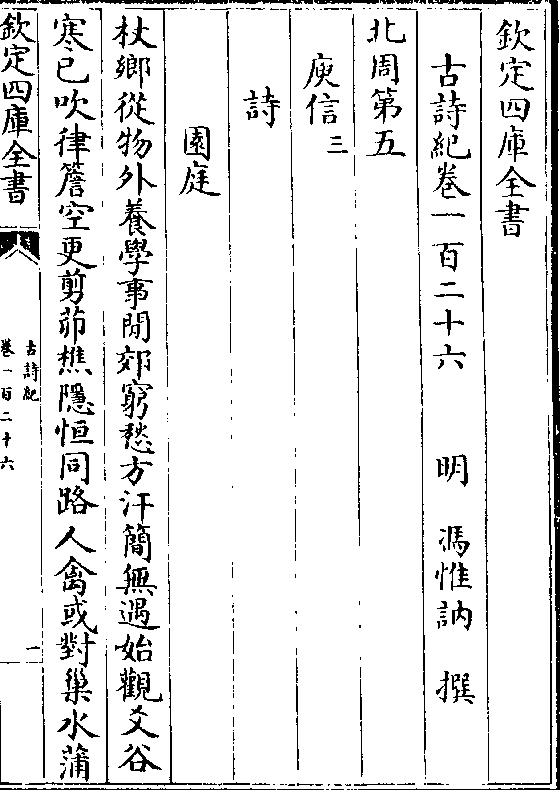 欽定四庫全書
古詩紀卷一百二十六　明　馮惟訥　撰
北周第五
庾信三
詩
園庭
杖鄉從物外養學事閒郊窮愁方汗簡無遇始觀爻谷
寒已吹律簷空更剪茆樵隱恒同路人禽或對巢水蒲
欽定四庫全書
古詩紀
卷一百二十六
一